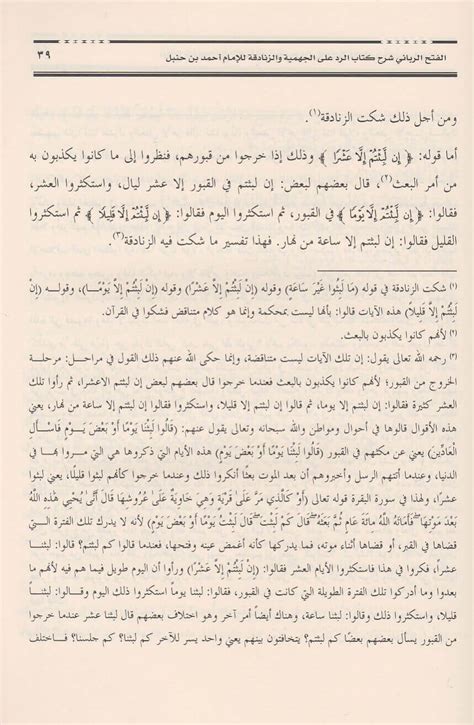 الفتح الرباني شرح كتاب الرد على الجهمية والزنادقة للإمام أحمد بن حنبل ٣٩
ومن أجل ذلك شكت الزنادقة(١).
أما قوله: ﴿ إِن لَّبِثْتُمْ إِلَّا عَشْرًا ﴾ وذلك إذا خرجوا من قبورهم، فنظروا إلى ما كانوا يكذبون به
من أمر البعث(٢)، قال بعضهم لبعض: إن لبثتم في القبور إلا عشر ليال، واستكثروا العشر،
فقالوا: ﴿ إِن لَّبِثْتُمْ إِلَّا يَوْمًا ﴾ في القبور، ثم استكثروا اليوم فقالوا: ﴿ إِن لَّبِثْتُمْ إِلَّا قَلِيلًا ﴾ ثم استكثروا
القليل فقالوا: إن لبثتم إلا ساعة من نهار. فهذا تفسير ما شكت فيه الزنادقة(٣).
(١) شكت الزنادقة في قوله (مَا لَبِثُوا غَيْرَ سَاعَةٍ) وقوله (إِنْ لَبِثْتُمْ إِلَّا عَشْرًا) وقوله (إِنْ لَبِثْتُمْ إِلَّا يَوْمًا)، وقوله (إِنْ
لَبِثْتُمْ إِلَّا قَلِيلًا) هذه الآيات قالوا: بأنها ليست بمحكمة وإنما هو كلام متناقض فشكوا في القرآن.
(٢) لأنهم كانوا يكذبون بالبعث.
(٣) رحمه الله تعالى يقول: إن تلك الآيات ليست متناقضة، وإنما حكى الله عنهم ذلك القول في مراحل: مرحلة
الخروج من القبور؛ لأنهم كانوا يكذبون بالبعث فعندما خرجوا قال بعضهم لبعض إن لبثتم الاعشرا، ثم رأوا
العشر كثيرة فقالوا: إن لبثتم إلا يوما، ثم قالوا: إن لبثتم إلا قليلا، واستكثروا فقالوا: إن لبثتم إلا ساعة من نهار، يعني
هذه الأقوال قالوها في أحوال ومواطن والله سبحانه وتعالى يقول عنهم: (قَالُوا لَبِثْنَا يَوْمًا أَوْ بَعْضَ يَوْمٍ فَاسْأَلِ
الْعَادِّينَ) يعني عن مكثهم في القبور (قَالُوا لَبِثْنَا يَوْمًا أَوْ بَعْضَ يَوْمٍ) هذه الأيام التي ذكروها هي التي مروا بها في
الدنيا، وعندما أتتهم الرسل وأخبروهم أن بعد الموت بعثا أنكروا ذلك وعندما خرجوا كأنهم لبثوا قليلا، يوما أو
عشرا، ولهذا في سورة البقرة قوله تعالى (أَوْ كَالَّذِي مَرَّ عَلَىٰ قَرْيَةٍ وَهِيَ خَاوِيَةٌ عَلَىٰ عُرُوشِهَا قَالَ أَنَّىٰ يُحْيِي هَٰذِهِ اللَّهُ
بَعْدَ مَوْتِهَا ۖ فَأَمَاتَهُ اللَّهُ مِائَةَ عَامٍ ثُمَّ بَعَثَهُ ۖ قَالَ كَمْ لَبِثْتَ ۖ قَالَ لَبِثْتُ يَوْمًا أَوْ بَعْضَ يَوْمٍ)، لأنه لا يدرك تلك الفترة التي
قضاها في القبر، أو قضاها أثناء موته، فما يدركها كأنه أغمض عينه وفتحها، فعندما قالوا: كم لبثتم؟ قالوا: لبثنــا
يوماً، فكثروا في هذا فاستكثروا الأيام العشر فقالوا: (إِنْ لَبِثْتُمْ إِلَّا عَشْرًا) ورأوا أن اليوم طويل فيما هم فيه لأنهم ما
بعدوا وما أدركوا تلك الفترة الطويلة التي كانت في القبور، ولهذا قالوا: لبثنا يوماً ثم استكثروا ذلك وقالوا: لبثنــا
قليلا، واستكثروا ذلك وقالوا: لبثنا ساعة، وهناك أيضاً أمر آخر وهو اختلاف بعضهم قال لبثنا عشر عندما خرجوا
من القبور يسأل بعضهم بعضًا كم لبثتم؟ يتخافتون بينهم يعني واحد يسر للآخر كم لبثتم؟ كم جلسنا؟ فــاختلف